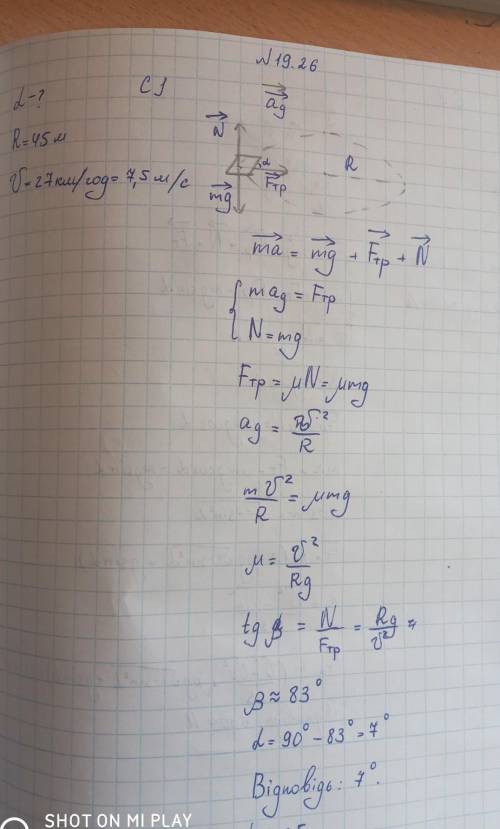 N 19.26
α - ?
СІ
R = 45 м
v = 27 км/год = 7,5 м/с
a⃗д
N⃗
α
R
F⃗тр
m⃗g
m⃗a = m⃗g + F⃗тр + N⃗
{ maд = Fтр
N = mg
Fтр = μN = μmg
aд = v²/R
mv²/R = μmg
μ = v²/Rg
tg β = N/Fтр = Rg/v² =
β ≈ 83°
α = 90° - 83° = 7°
Відповідь: 7°.
SHOT ON MI PLAY